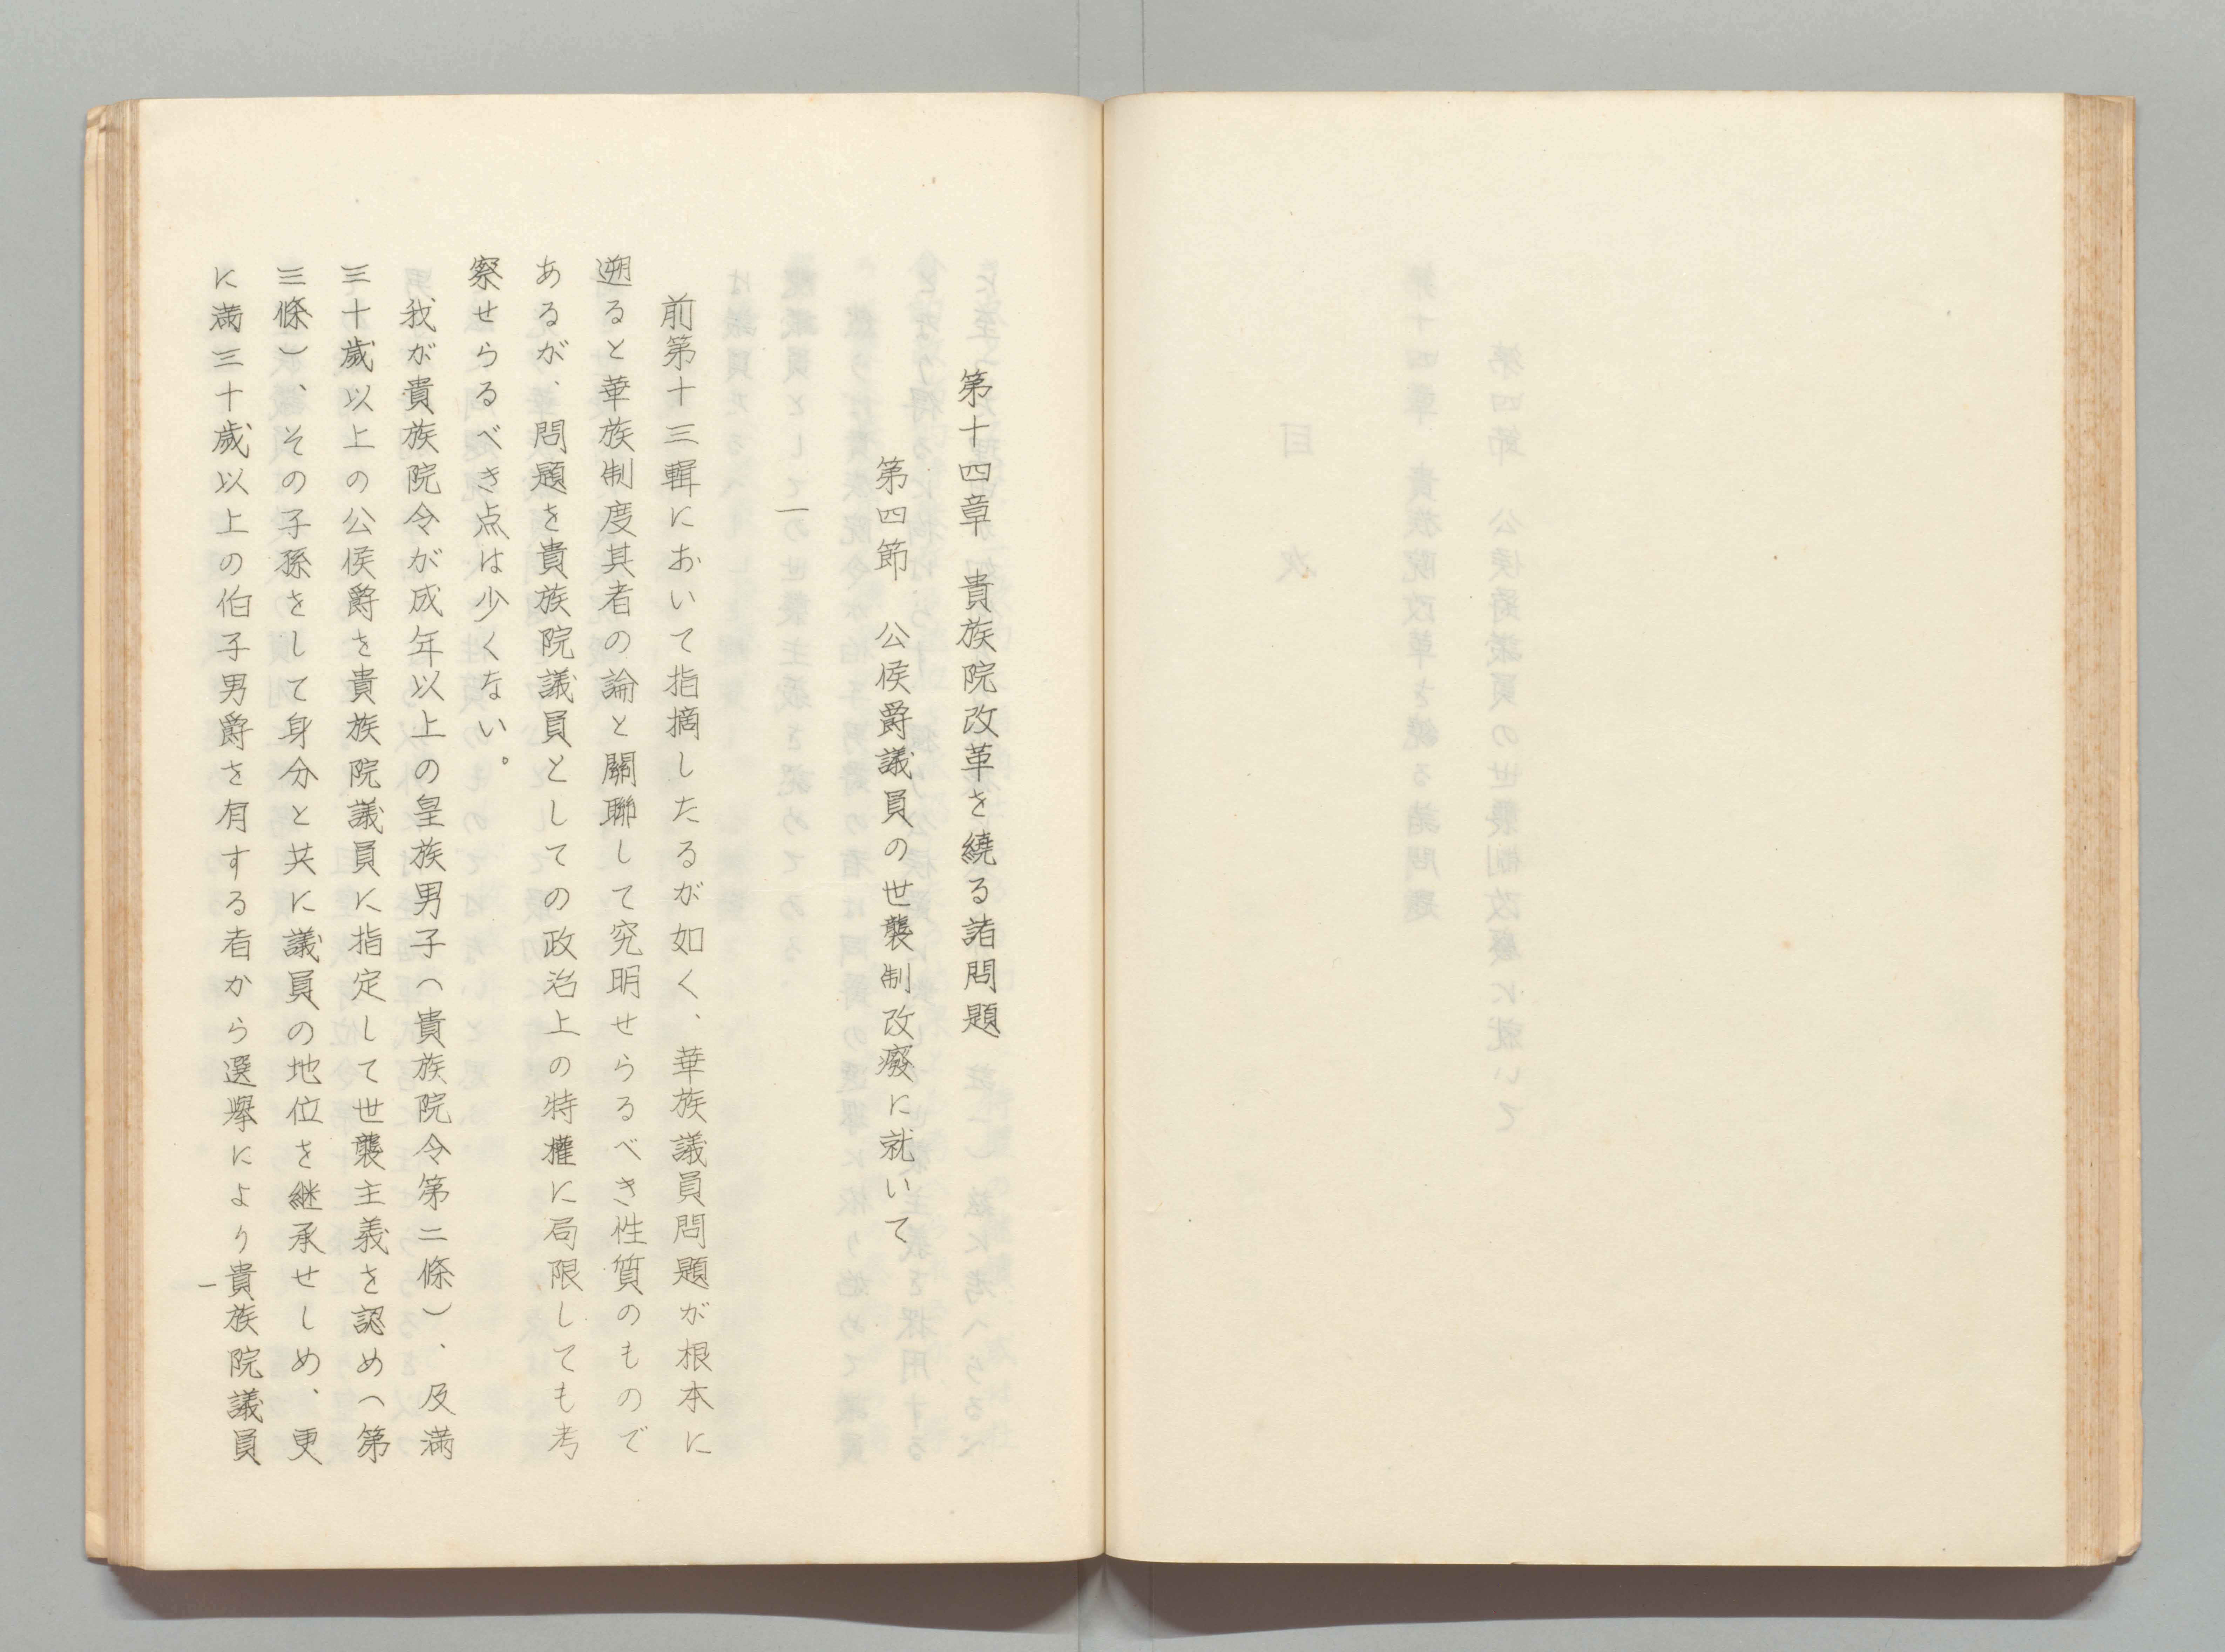 第十四章　貴族院改革を繞る諸問題
第四節　公侯爵議員の世襲制改癈に就いて
一
前第十三輯において指摘したるが如く、華族議員問題が根本に
遡ると華族制度其者の論と關聯して究明せらるべき性質のもので
あるが、問題を貴族院議員としての政治上の特權に局限しても考
察せらるべき点は少くない。
我が貴族院令が成年以上の皇族男子（貴族院令第二條）、及満
三十歲以上の公侯爵を貴族院議員に指定して世襲主義を認め（第
三條）、その子孫をして身分と共に議員の地位を継承せしめ、更
に満三十歲以上の伯子男爵を有する者から選擧により貴族院議員
一